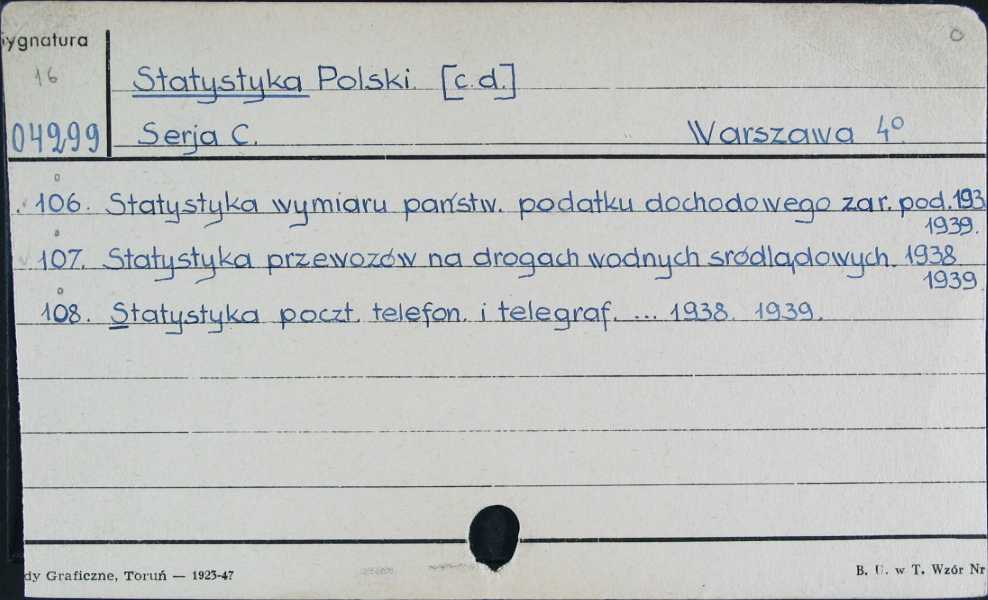 ygnatura
16
Statystyka Polski. [c.d.]
04299 Serja C. Warszawa 4º.
106. Statystyka wymiaru państw. podatku dochodowego za r. pod. 193
1939.
107. Statystyka przewozów na drogach wodnych sródlądowych. 1938
1939
108. Statystyka poczt. telefon. i telegraf. ... 1938. 1939.
dy Graficzne, Toruń — 1923-47
B. U. w T. Wzór Nr